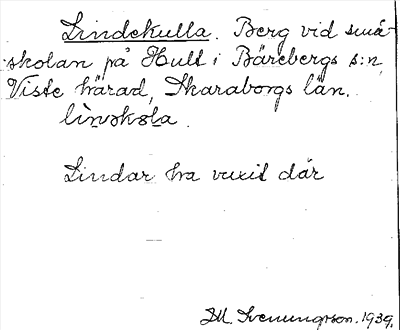 Lindekulla. Berg vid små-
skolan på Hult i Bärebergs s:n,
Viste härad, Skaraborgs län.
linskola.
Lindar ha vuxit där
M. Svenungsson. 1939.